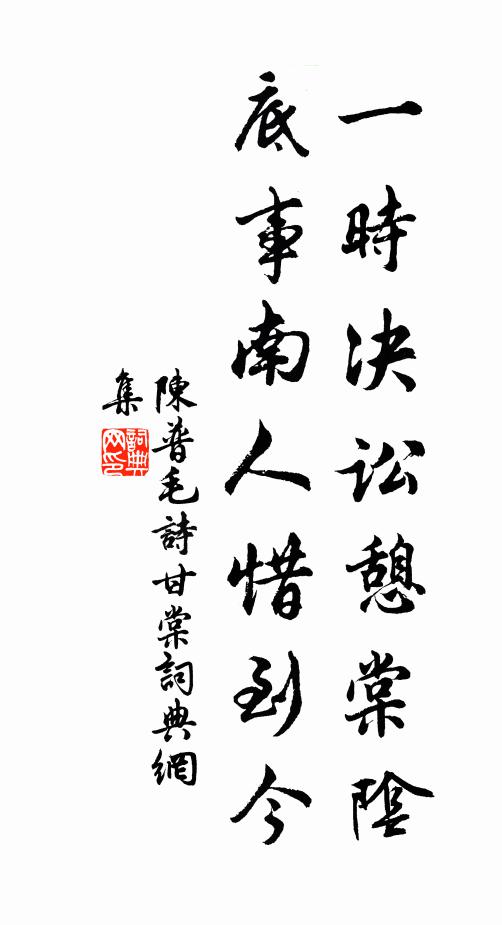 一時決訟憩棠陰
底事南人惜到今
陳普毛詩甘棠詞典網
集
詞典网印